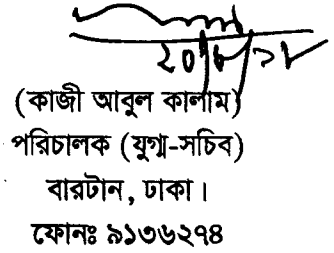 ২০/৮/১৮
(কাজী আবুল কালাম)
পরিচালক (যুগ্ম-সচিব)
বারটান, ঢাকা।
ফোনঃ ৯১৩৬২৭৪